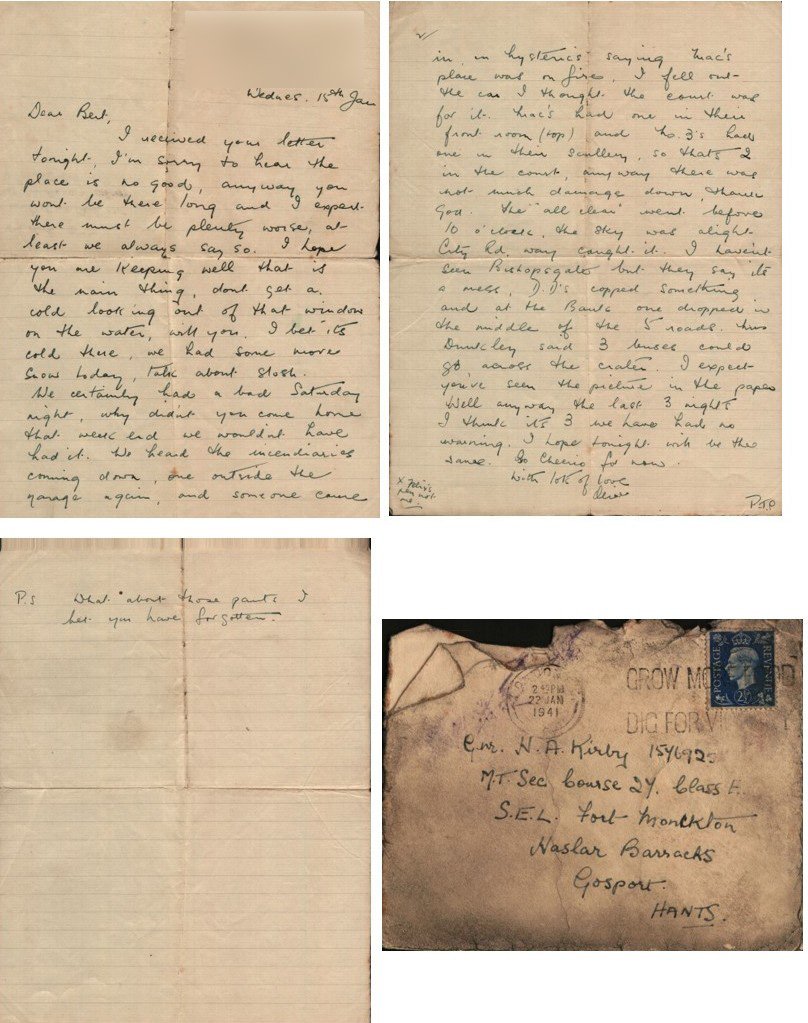 Wednes. 15th Jan
Dear Bert,
I received your letter
tonight, I'm sorry to hear the
place is no good, anyway you
wont be there long and I expect
there must be plenty worse, at
least we always say so. I hope
you are keeping well that is
the main thing, dont get a
cold looking out of that window
on the water, will you. I bet its
cold there, we had some more
snow today, talk about slosh.
We certainly had a bad Saturday
night, why didn't you come home
that week end we wouldn't have
had it. We heard the incendiaries
coming down, one outside the
garage again, and someone came
2/
in in hysterics saying Mac's
place was on fire. I fell out
the car I thought the court was
for it. Mac's had one in their
front room (top) and No. 3's had
one in their scullery, so thats 2
in the court, anyway there was
not much damage down, thank
God. The "all clear" went before
10 o'clock, the sky was alight
City Rd, way caught it. I haven't
seen Bishopsgate but they say its
a mess, D.D's copped something
and at the Bank one dropped in
the middle of the 5 roads.
Dunkley said 3 buses could
go across the crater. I expect
you've seen the picture in the paper
Well anyway the last 3 nights
I think its 3 we have had no
warning. I hope tonight will be the
same. So Cheerio for now.
With lots of love
X
pen not
me.
P.T.O
P.S What about those pants I
bet you have forgotten.
2 PM
22 JAN
1941
GROW MO
DIG FOR VI
POSTAGE
REVENUE
2½
Gnr. H. A. Kirby 1546923
M.T. Sec Course 27. Class
S.E.L. Fort Monckton
Haslar Barracks
Gosport.
HANTS.